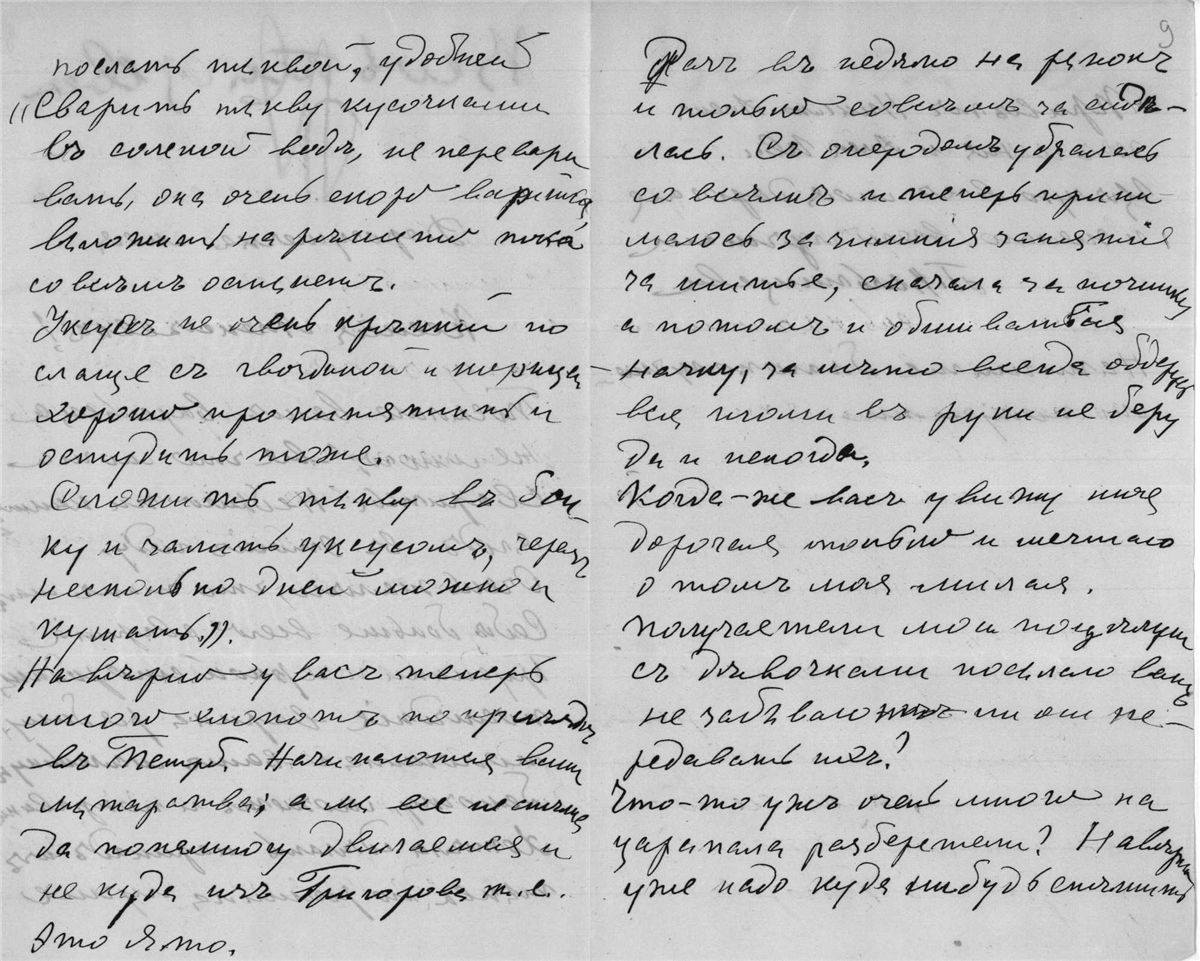 послать тыквой, удобней
„Сварить тыкву кусочками
въ соленой водѣ, не перевари
вать, она очень скоро варится,
выложить на рѣшето пока
совсѣмъ остынетъ.
Уксусъ не очень крѣпкій по
слаще съ гвоздикой и
хорошо прокипятить и
остудить тоже.
Сложить тыкву въ бан
ку и залить уксусомъ, черезъ
несколько дней можно и
кушать.)).
Навѣрно у васъ теперь
много хлопотъ по пріѣздѣ
въ Петрб. Начинаются ваши
мытарства; а мы все не спѣша
да понемногу двигаемся и
не куда изъ Григорова т.е.
это я-то.
9
Разъ въ недѣлю на рынокъ
и только совсѣмъ засидѣ-
лась. Съ огородомъ убралась
со всѣмъ и теперь прини
маюсь за зимнія занятія
за шитье, сначала за починку
а потомъ и обшиваться
начну, за лѣто всегда обдерусь
вся иголи въ руки не беру
да и некогда.
Когда-же васъ увижу моя
дорогая только и мечтаю
о томъ моя милая.
Получаетели мои поцѣлуи
съ дѣвочками посылаю вамъ
не забываютъ ли они пе-
редавать ихъ?
Что-то ужъ очень много на
царапала разберетели? Навѣрно
уже надо куда нибудь спѣшить